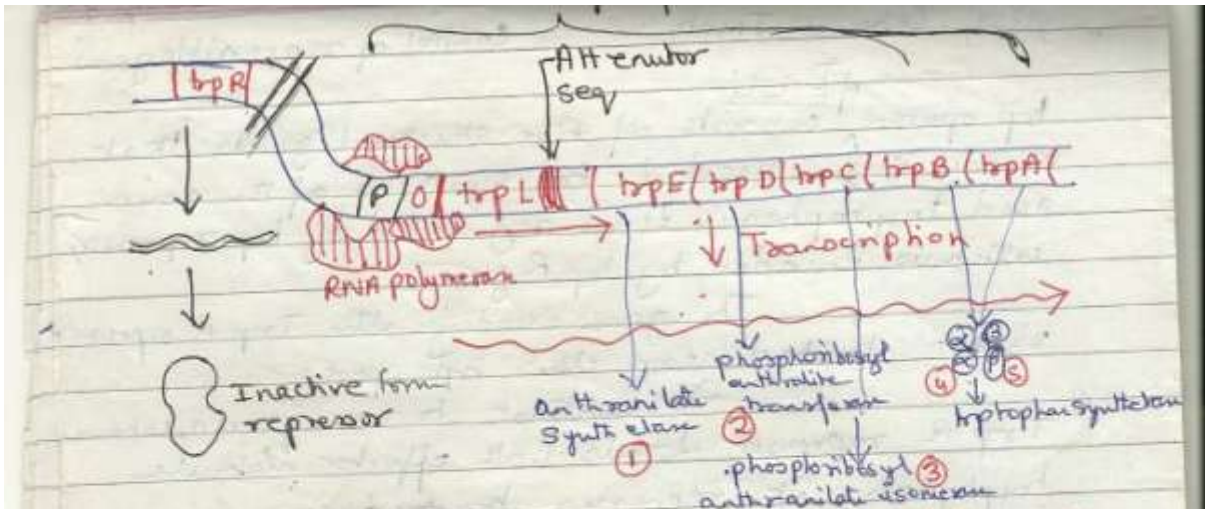 Attenutor
seq
trpR
P O trpL trpE trpD trpC trpB trpA
Transcription
RNA polymerase
Inactive form
repressor
anthranilate
synthetase
1
phosphoribosyl
anthralite
transferase
2
phosphoribosyl 3
anthranilate isomerase
4 5
tryptophan synthetase